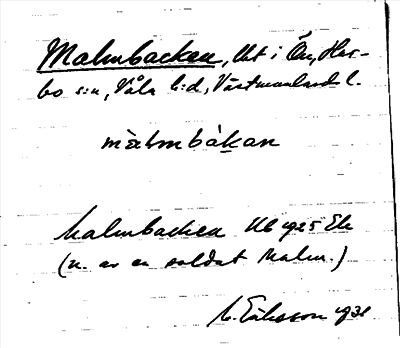 Malmbacken, lht i Ön, Har-
bo s:n, Våla h:d, Västmanlands l.
màlmbàkan
Malmbacken Ub 1925 Ek
(u. av en soldat Malm.)
M. Eriksson 1931